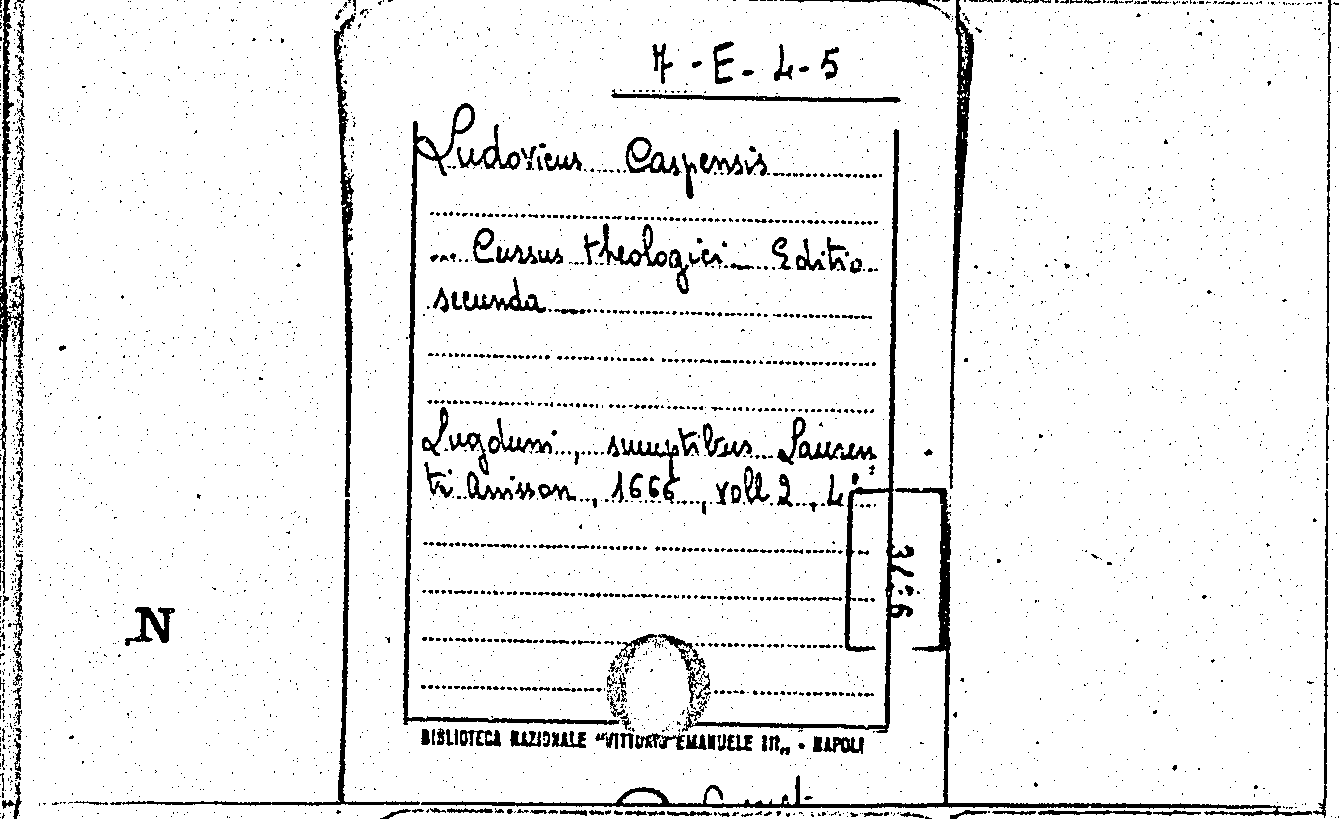 7-E-4-5
Ludovicus Caspensis
... Cursus theologici... Editio
secunda...
Lugduni, sumptibus Lauren
tii Anisson, 1666, voll 2, 4°
N
BIBLIOTECA NAZIONALE "VITTORIO EMANUELE III„ - NAPOLI